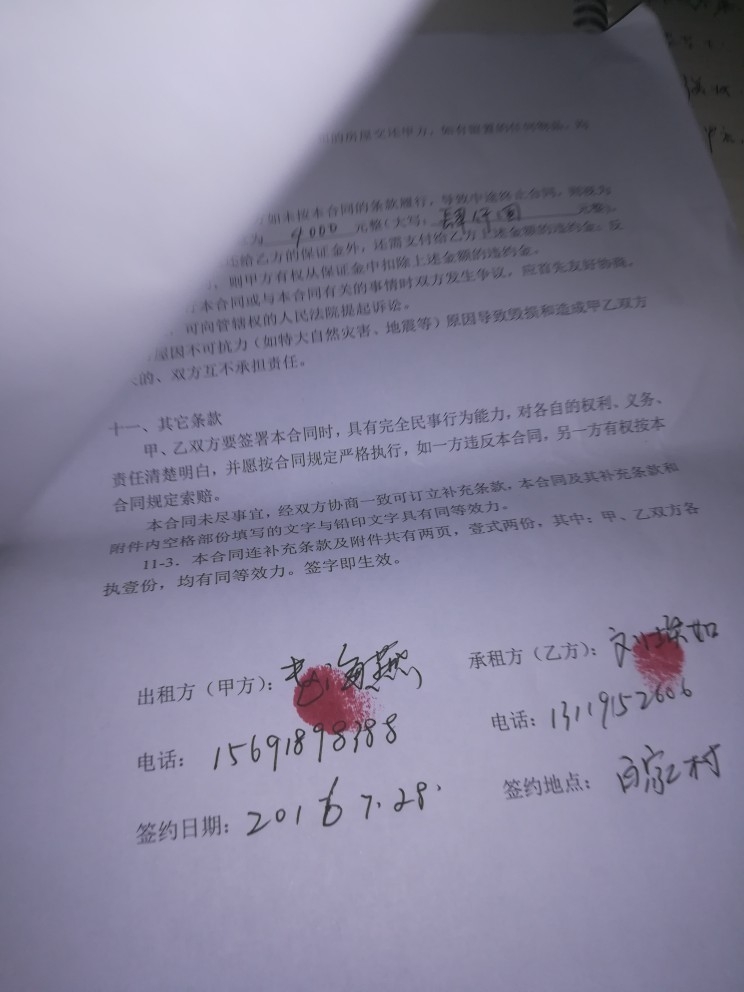 的房屋交还甲方，如有留置的任何物品，均
如未按本合同的条款履行，导致中途终止合同，则视为
为 4000 元整（大写：肆仟圆 元整）。
给乙方的保证金外，还需支付给乙方上述金额的违约金。反
，则甲方有权从保证金中扣除上述金额的违约金。
本合同或与本合同有关的事情时双方发生争议，应首先友好协商，
可向管辖权的人民法院提起诉讼。
屋因不可抗力（如特大自然灾害、地震等）原因导致毁损和造成甲乙双方
的、双方互不承担责任。
十一、其它条款
甲、乙双方要签署本合同时，具有完全民事行为能力，对各自的权利、义务、
责任清楚明白，并愿按合同规定严格执行，如一方违反本合同，另一方有权按本
合同规定索赔。
本合同未尽事宜，经双方协商一致可订立补充条款，本合同及其补充条款和
附件内空格部份填写的文字与铅印文字具有同等效力。
11-3．本合同连补充条款及附件共有两页，壹式两份，其中：甲、乙双方各
执壹份，均有同等效力。签字即生效。
出租方（甲方）：赵海燕
承租方（乙方）：刘 如
电话： 15691898388
电话：13119152606
签约日期：2016 7.28.
签约地点： 白家村